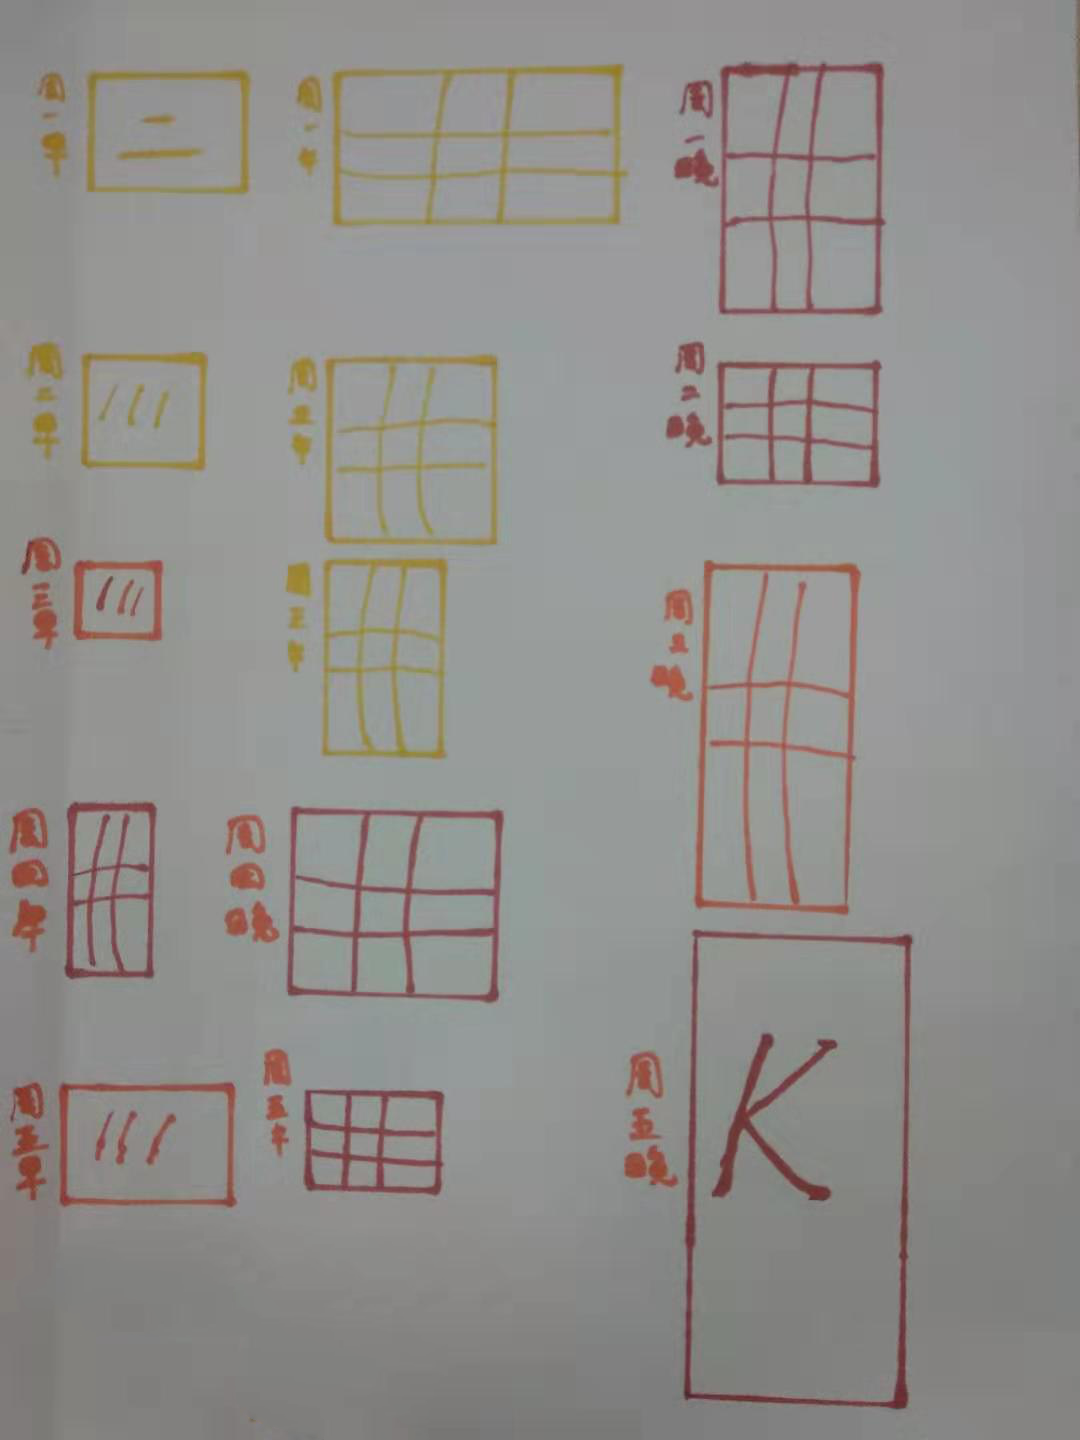 周一早
二
周一午
周一晚
周二早
周午
周二晚
周三早
周三午
周三晚
周四午
周四晚
周五早
周五午
周五晚
K